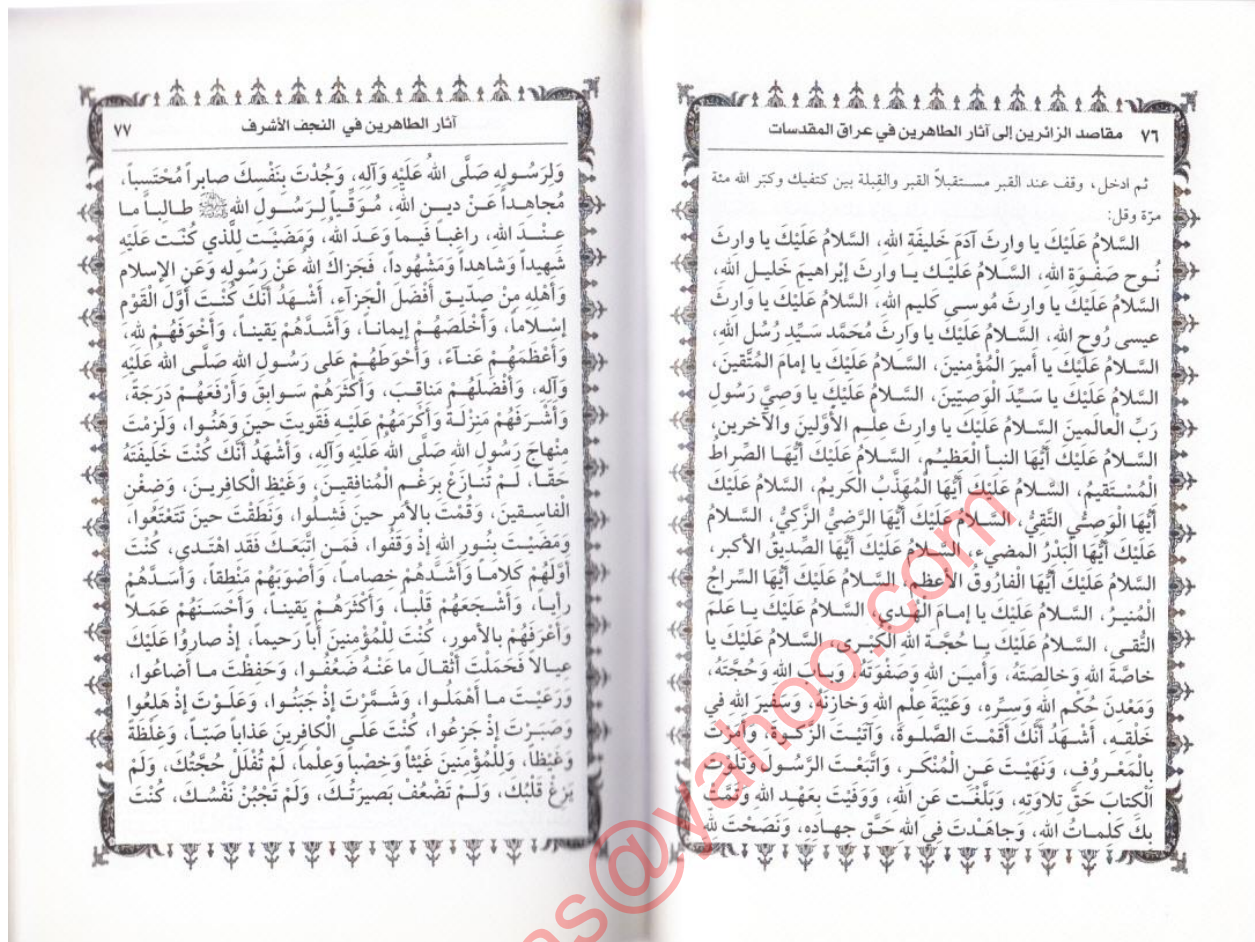 ٧٦ مقاصد الزائرين إلى آثار الطاهرين في عراق المقدسات
ثم ادخل، وقف عند القبر مستقبلاً القبر والقبلة بين كتفيك وكبّر الله مئة
مرّة وقل:
السَّلامُ عَلَيْكَ يا وارِثَ آدَمَ خَليفَةِ اللهِ، السَّلامُ عَلَيْكَ يا وارِثَ
نُوح صَفْوَةِ اللهِ، السَّلامُ عَلَيْكَ يا وارِثَ إبْراهيمَ خَليل اللهِ،
السَّلامُ عَلَيْكَ يا وارِثَ مُوسى كَليم اللهِ، السَّلامُ عَلَيْكَ يا وارِثَ
عيسى رُوحِ اللهِ، السَّلامُ عَلَيْكَ يا وارِثَ مُحَمَّد سَيِّدِ رُسُل اللهِ،
السَّلامُ عَلَيْكَ يا أميرَ الْمُؤْمِنينَ، السَّلامُ عَلَيْكَ يا إمامَ المُتَّقينَ،
السَّلامُ عَلَيْكَ يا سَيِّدَ الْوَصِيّينَ، السَّلامُ عَلَيْكَ يا وصيَّ رَسُولِ
رَبِّ العالَمينَ السَّلامُ عَلَيْكَ يا وارِثَ عِلْمِ الأوَّلينَ والآخرين،
السَّلامُ عَلَيْكَ أيُّهَا النبأ الْعَظيمُ، السَّلامُ عَلَيْكَ أيُّهَا الصِّراطُ
الْمُسْتَقيمُ، السَّلامُ عَلَيْكَ أيُّهَا الْمُهَذَّبُ الْكَريمُ، السَّلامُ عَلَيْكَ
أيُّهَا الْوَصِيُّ التَّقِيُّ، السَّلامُ عَلَيْكَ أيُّهَا الرَّضِيُّ الزَّكِيُّ، السَّلامُ
عَلَيْكَ أيُّهَا الْبَدْرُ المضيء، السَّلامُ عَلَيْكَ أيُّهَا الصِّديقُ الأكبر،
السَّلامُ عَلَيْكَ أيُّهَا الْفارُوقُ الأعظم، السَّلامُ عَلَيْكَ أيُّهَا السِّراجُ
الْمُنيرُ، السَّلامُ عَلَيْكَ يا إمامَ الْهُدى، السَّلامُ عَلَيْكَ يا عَلَمَ
التُّقى، السَّلامُ عَلَيْكَ يا حُجَّةَ اللهِ الْكُبْرى، السَّلامُ عَلَيْكَ يا
خاصَّةَ اللهِ وَخالِصَتَهُ، وأمينَ اللهِ وَصَفْوَتَهُ، وبابَ اللهِ وَحُجَّتَهُ،
وَمَعْدِنَ حُكْمِ اللهِ وَسِرّه، وَعَيْبَةَ عِلْمِ اللهِ وَخازِنَهُ، وَسَفيرَ الله في
خَلْقِه، أشْهَدُ أنَّكَ أقَمْتَ الصَّلوةَ، وَآتَيْتَ الزَّكوةَ، وأمَرْتَ
بِالْمَعْرُوفِ، وَنَهَيْتَ عَنِ الْمُنْكَرِ، وَاتَّبَعْتَ الرَّسُولَ وَتَلَوْتَ
الْكِتابَ حَقَّ تِلاوَتِه، وَبَلَّغْتَ عَنِ اللهِ، وَوَفَيْتَ بِعَهْدِ اللهِ وَتَمَّتْ
بِكَ كَلِماتُ اللهِ، وَجاهَدْتَ فِي اللهِ حَقَّ جِهادِه، وَنَصَحْتَ للهِ
آثار الطاهرين في النجف الأشرف ٧٧
وَلِرَسُولِه صَلَّى اللهُ عَلَيْهِ وَآلِهِ، وَجُدْتَ بِنَفْسِكَ صابِراً مُحْتَسِباً،
مُجاهِداً عَنْ دينِ اللهِ، مُوَقِّياً لِرَسُولِ اللهِ ﷺ طالِباً ما
عِنْدَ اللهِ، راغِباً فيما وَعَدَ اللهُ، وَمَضَيْتَ لِلَّذي كُنْتَ عَلَيْهِ
شَهيداً وَشاهداً وَمَشْهُوداً، فَجَزاكَ اللهُ عَنْ رَسُولِه وَعَنِ الإسلام
وَأهْلِه مِنْ صِدّيق أفْضَلَ الْجَزآء، أشْهَدُ أنَّكَ كُنْتَ أوَّلَ الْقَوْم
إسْلاماً، وَأخْلَصَهُمْ إيماناً، وَأشَدَّهُمْ يَقيناً، وَأخْوَفَهُمْ لله،
وَأعْظَمَهُمْ عَنآءً، وَأحْوَطَهُمْ عَلى رَسُول الله صَلَّى الله عَلَيْهِ
وَآلِه، وَأفْضَلَهُمْ مَناقِبَ، وَأكْثَرَهُمْ سَوابِقَ وَأرْفَعَهُمْ دَرَجَةً،
وَأشْرَفَهُمْ مَنْزِلَةً وَأكْرَمَهُمْ عَلَيْه فَقَويتَ حينَ وَهَنُوا، وَلَزِمْتَ
مِنْهاجَ رَسُولِ الله صَلَّى اللهُ عَلَيْهِ وَآلِهِ، وَأشْهَدُ أنَّكَ كُنْتَ خَليفَتَهُ
حَقّاً، لَمْ تُنازَعْ بِرَغْمِ الْمُنافِقينَ، وَغَيْظِ الْكافِرينَ، وَضِغْنِ
الْفاسِقينَ، وَقُمْتَ بِالأمْرِ حينَ فَشِلُوا، وَنَطَقْتَ حينَ تَتَعْتَعُوا،
وَمَضَيْتَ بِنُورِ الله إذْ وَقَفُوا، فَمَنِ اتَّبَعَكَ فَقَد اهْتَدى، كُنْتَ
أوَّلَهُمْ كَلاماً وَأشَدَّهُمْ خِصاماً، وَأصْوَبَهُمْ مَنْطِقاً، وَأسَدَّهُمْ
رأياً، وَأشْجَعَهُمْ قَلْباً، وَأكْثَرَهُمْ يَقيناً، وَأحْسَنَهُمْ عَمَلا
وَأعْرَفَهُمْ بِالأمور، كُنْتَ لِلْمُؤْمِنينَ أبا رَحيماً، إذْ صارُوا عَلَيْكَ
عِيالا فَحَمَلْتَ أثْقالَ ما عَنْهُ ضَعُفُوا، وَحَفِظْتَ ما أضاعُوا،
وَرَعَيْتَ ما أهْمَلُوا، وَشَمَّرْتَ إذْ جَبَنُوا، وَعَلَوْتَ إذْ هَلِعُوا
وَصَبَرْتَ إذْ جَزِعُوا، كُنْتَ عَلَى الْكافِرينَ عَذاباً صَبّاً، وَغِلْظَةً
وَغَيْظاً، وَلِلْمُؤْمِنينَ غَيْثاً وَخِصْباً وَعِلْماً، لَمْ تُفْلَلْ حُجَّتُكَ، وَلَمْ
يَزِغْ قَلْبُكَ، وَلَمْ تَضْعُفْ بَصيرَتُكَ، وَلَمْ تَجْبُنْ نَفْسُكَ، كُنْتَ
s@yahoo.com